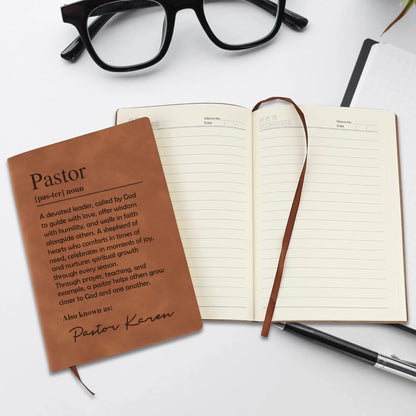 Pastor
[pas-ter] noun
A devoted leader, called by God
to guide with love, offer wisdom
with humility, and walk in faith
alongside others. A shepherd of
hearts who comforts in times of
need, celebrates in moments of joy,
and nurtures spiritual growth
through every season.
Through prayer, teaching, and
example, a pastor helps others grow
closer to God and one another.
Also known as:
Pastor Karen
Memo No.
Date / /
Memo No.
Date / /